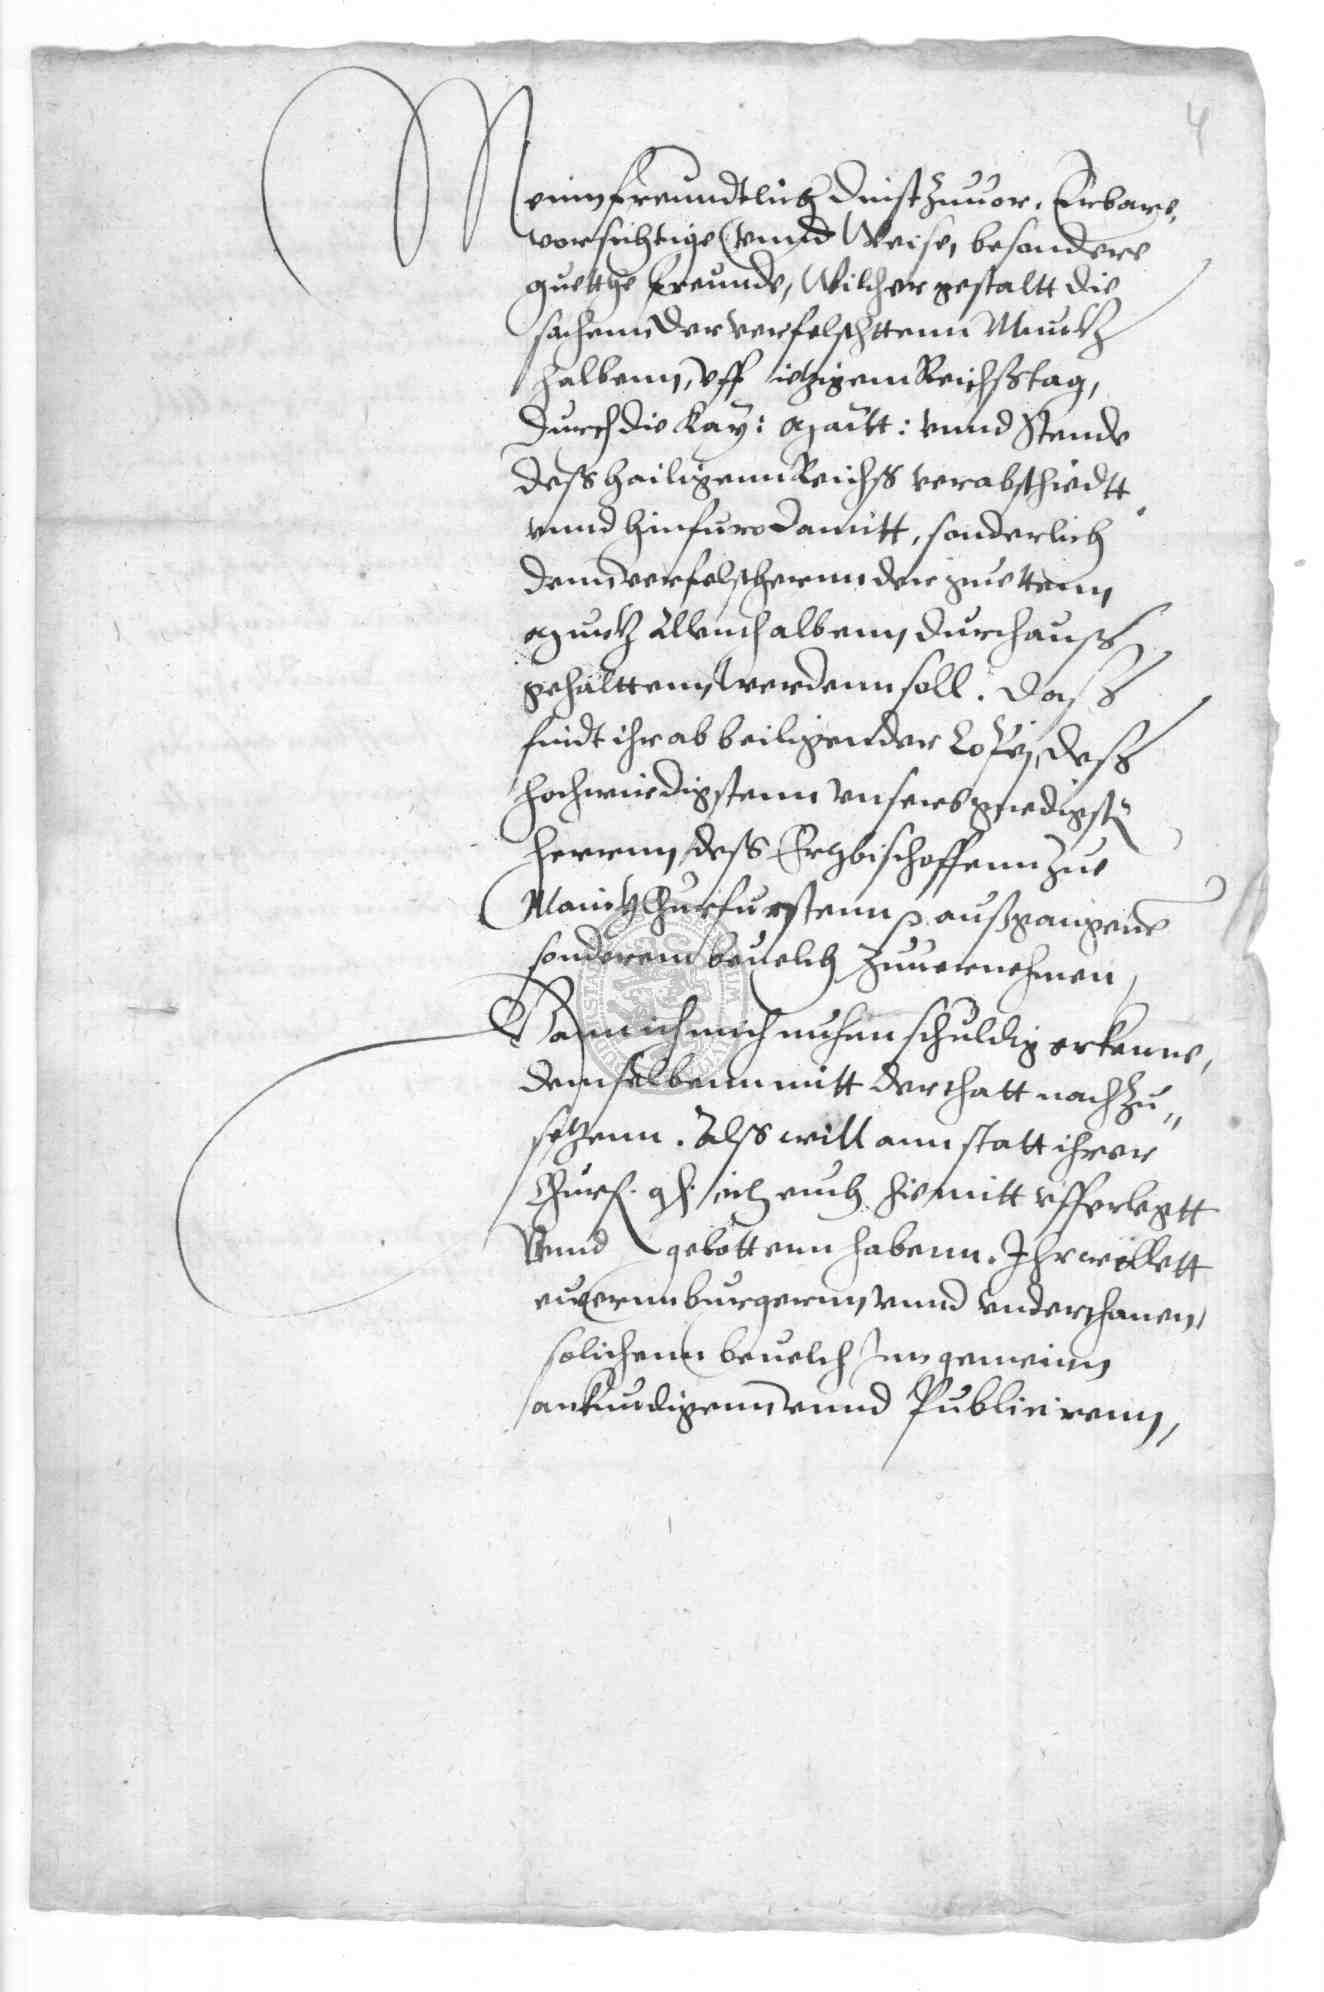 4
Meinn freundtlich dinst zuuor. Erbare,
vorsichtige vnnd Weise, besondere
guetthe freunde, Wilcher gestaltt die
sachenn der verfelschttenn Muntz
halbenn, vff ietzigem Reichßtag,
durch die Kay: Maÿtt: vnnd Stende
deß hailigenn Reichs verabschiedtt
vnnd hinfuro damitt, sonderlich
denn verfelschernn der guettenn
Muntz allenthalbenn, durchauß
gehalttenn, werdenn soll. Daß
findt ihr ab beiligender Copej, deß
hochwirdigstenn vnsers gnedigst&
herrenn, deß Ertzbischoffenn zue
Maintz Churfurstenn p außgangene
sonderem beuelch zuuernehmen,
Wann ich mich nuhnn schuldig erkenne,
demselbenn mitt der thatt nach zu„
setzenn. Alß will ann statt ihrer
Churf. gh. ich euch hiemitt vfferlegtt
Vnnd gebottenn habenn. Ihr wöllett
euwernn burgernn, vnnd vnderthanen,
solichenn beuelch Inn gemeinn
ankundigenn vnnd Publicirenn,